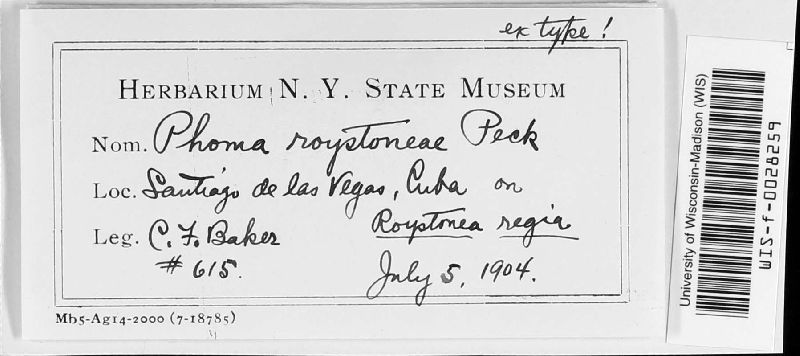 ex type!
HERBARIUM N. Y. STATE MUSEUM
Nom. Phoma roystoneae Peck
Loc. Santiago de las Vegas, Cuba on
Leg. C. F. Baker Roystonea regia
# 615. July 5, 1904.
Mb5-Ag14-2000 (7-18785)
University of Wisconsin-Madison (WIS)
WIS-f-0028259